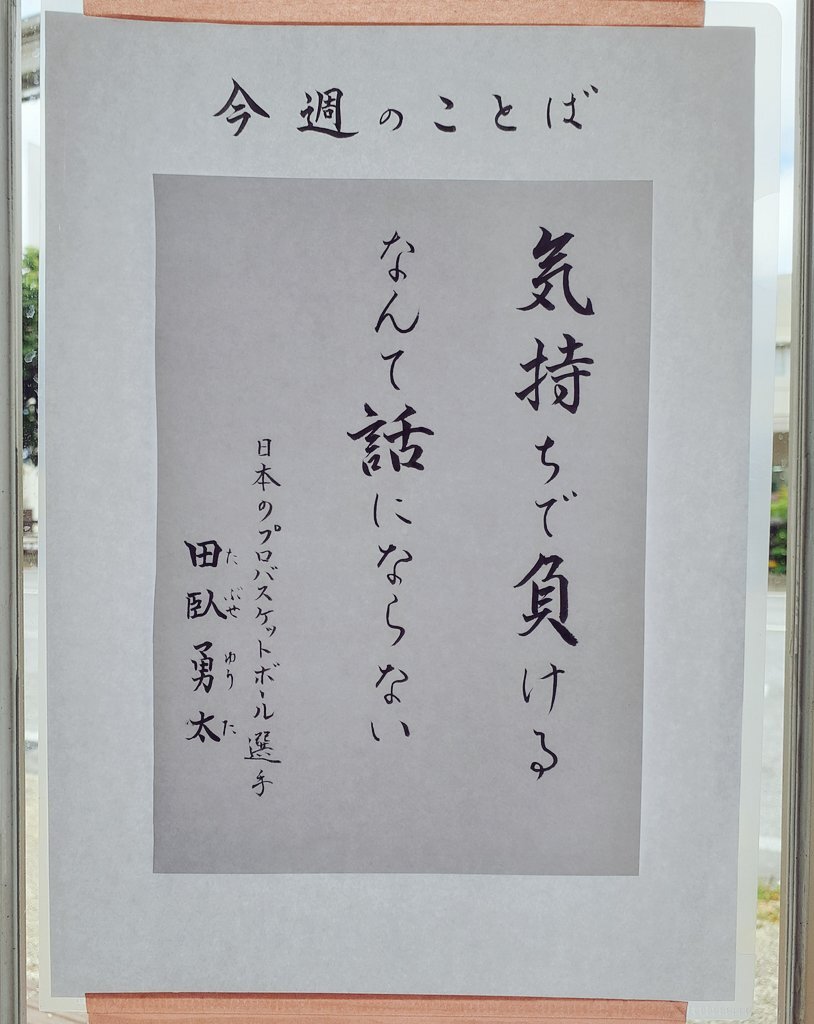 今週のことば
気持ちで負ける
なんて話にならない
日本のプロバスケットボール選手
田臥勇太
たぶせゆうた